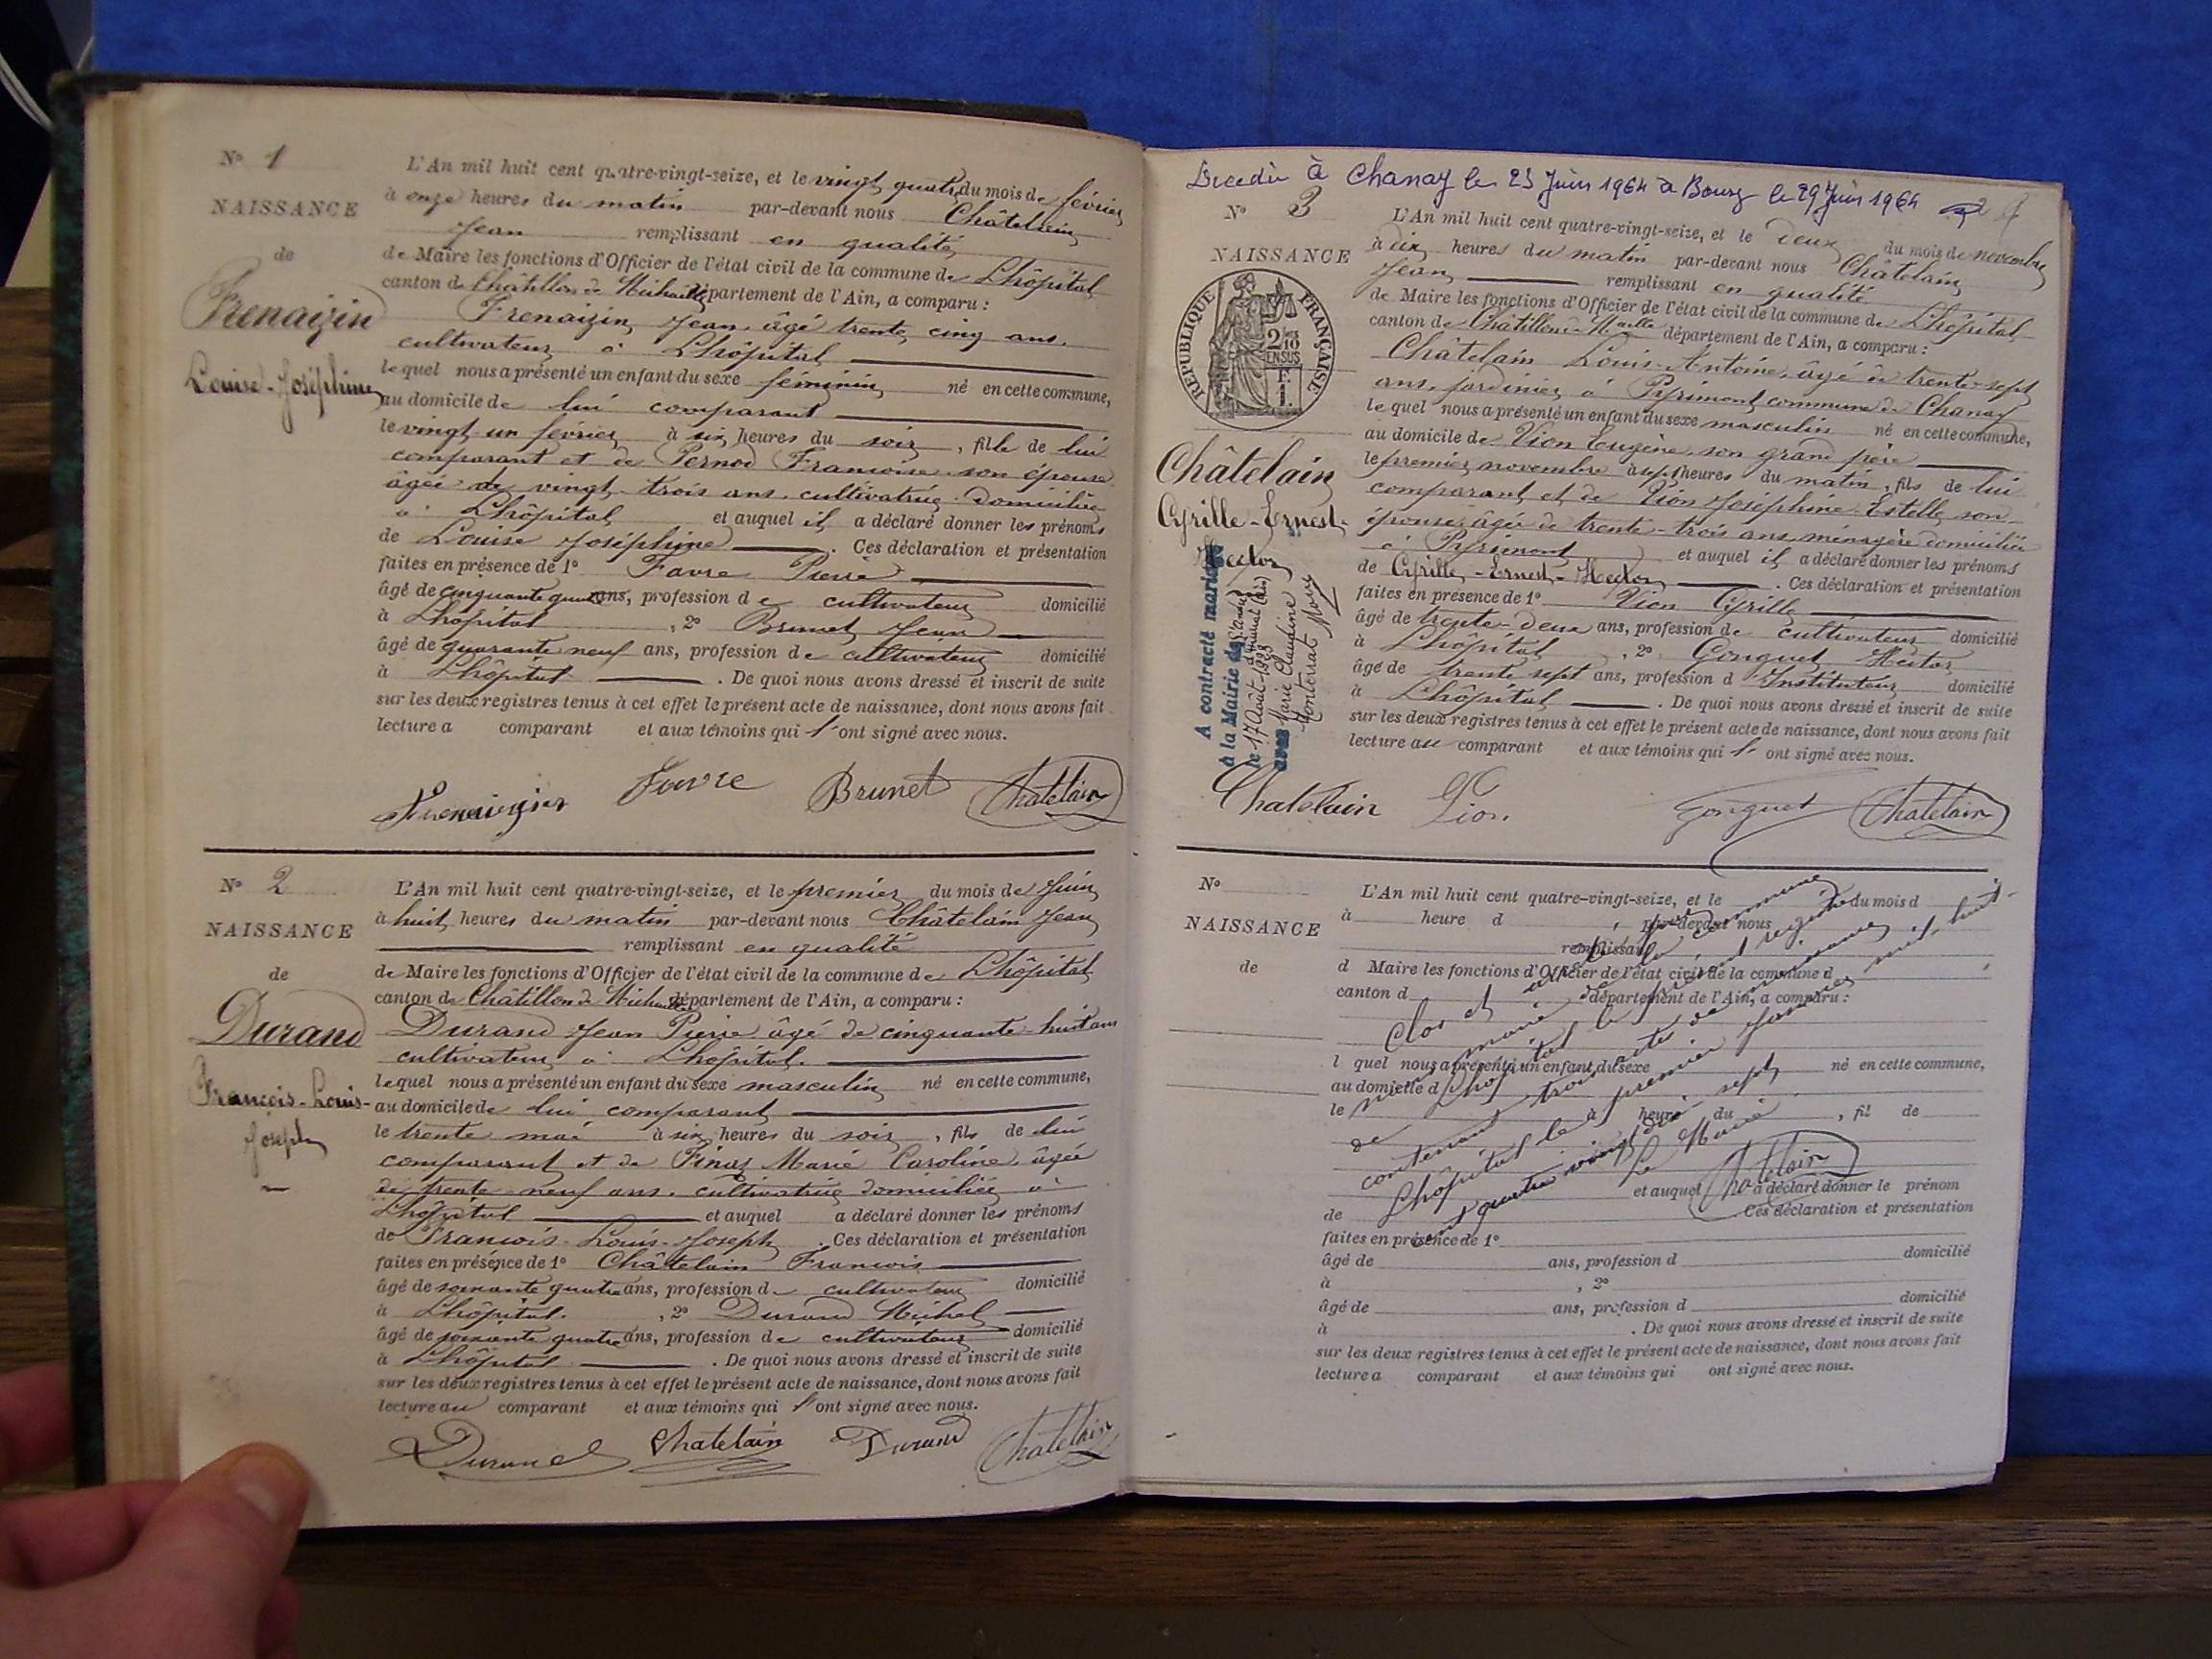 N° 1
NAISSANCE
de
Frenaizin
Louise-Joséphine
L'An mil huit cent quatre-vingt-seize, et le vingt quatre du mois de février
à onze heures du matin par-devant nous Châtelain
Jean remplissant en qualité
de Maire les fonctions d'Officier de l'état civil de la commune de Lhôpital
canton de Châtillon de Michaille département de l'Ain, a comparu :
Frenaizin Jean, âgé trente cinq ans.
cultivateur à Lhôpital
lequel nous a présenté un enfant du sexe féminin né en cette commune,
au domicile de lui comparant
le vingt un février à six heures du soir, fille de lui
comparant et de Pernod Françoise son épouse
âgée de vingt-trois ans, cultivatrice domiciliée
à Lhôpital et auquel il a déclaré donner les prénoms
de Louise Joséphine. Ces déclaration et présentation
faites en présence de 1° Favre Pierre
âgé de cinquante quatre ans, profession de cultivateur domicilié
à Lhôpital, 2° Brunet Jean
âgé de quarante neuf ans, profession de cultivateur domicilié
à Lhôpital. De quoi nous avons dressé et inscrit de suite
sur les deux registres tenus à cet effet le présent acte de naissance, dont nous avons fait
lecture a comparant et aux témoins qui l'ont signé avec nous.
Favre Brunet Chatelain
N° 2
NAISSANCE
de
Durand
François-Louis-
Joseph
L'An mil huit cent quatre-vingt-seize, et le premier du mois de Juin
à huit heures du matin par-devant nous Châtelain Jean
remplissant en qualité
de Maire les fonctions d'Officier de l'état civil de la commune de Lhôpital
canton de Châtillon de Michaille département de l'Ain, a comparu :
Durand Jean Pierre âgé de cinquante-huit ans
cultivateur à Lhôpital.
lequel nous a présenté un enfant du sexe masculin né en cette commune,
au domicile de lui comparant
le trente mai à six heures du soir, fils de lui
comparant et de Pinaz Marie Caroline, âgée
de trente-neuf ans, cultivatrice domiciliée à
Lhôpital et auquel a déclaré donner les prénoms
de François-Louis-Joseph. Ces déclaration et présentation
faites en présence de 1° Châtelain François
âgé de soixante quatre ans, profession de cultivateur domicilié
à Lhôpital, 2° Durand Michel
âgé de soixante quatre ans, profession de cultivateur domicilié
à Lhôpital. De quoi nous avons dressé et inscrit de suite
sur les deux registres tenus à cet effet le présent acte de naissance, dont nous avons fait
lecture au comparant et aux témoins qui l'ont signé avec nous.
Durand Chatelain Durand Chatelain
Décédé à Chanay le 23 Juin 1964 à Bourg le 29 Juin 1964
N° 3
NAISSANCE
RÉPUBLIQUE FRANÇAISE
2/10 EN SUS
Châtelain
Cyrille-Ernest-
Hector
A contracté mariage
à la Mairie de
le 17 Août 1928
avec Marie Claudine
Monterrat
L'An mil huit cent quatre-vingt-seize, et le deux du mois de novembre
à dix heures du matin par-devant nous Châtelain
Jean remplissant en qualité
de Maire les fonctions d'Officier de l'état civil de la commune de Lhôpital
canton de Châtillon de Maille département de l'Ain, a comparu :
Châtelain Louis-Antoine, âgé de trente-sept
ans, jardinier, à Pyrimont commune de Chanay
lequel nous a présenté un enfant du sexe masculin né en cette commune,
au domicile de Vion Eugène, son grand père
le premier novembre à sept heures du matin, fils de lui
comparant et de Vion Joséphine Estelle son
épouse, âgée de trente-trois ans, ménagère domiciliée
à Pyrimont et auquel il a déclaré donner les prénoms
de Cyrille-Ernest-Hector. Ces déclaration et présentation
faites en présence de 1° Vion Cyrille
âgé de trente-deux ans, profession de cultivateur domicilié
à Lhôpital, 2° Gonguet Hector
âgé de trente sept ans, profession d'Instituteur domicilié
à Lhôpital. De quoi nous avons dressé et inscrit de suite
sur les deux registres tenus à cet effet le présent acte de naissance, dont nous avons fait
lecture au comparant et aux témoins qui l'ont signé avec nous.
Chatelain Vion Gonguet Chatelain
N°
NAISSANCE
de
L'An mil huit cent quatre-vingt-seize, et le du mois d
à heure d par-devant nous
remplissant
d Maire les fonctions d'Officier de l'état civil de la commune d
canton d département de l'Ain, a comparu :
l quel nous a présenté un enfant du sexe né en cette commune,
au domicile d
le à heure du, fil de
et auquel a déclaré donner le prénom
de Ces déclaration et présentation
faites en présence de 1°
âgé de ans, profession d domicilié
à, 2°
âgé de ans, profession d domicilié
à. De quoi nous avons dressé et inscrit de suite
sur les deux registres tenus à cet effet le présent acte de naissance, dont nous avons fait
lecture a comparant et aux témoins qui ont signé avec nous.
Clos et arrêté par
nous maire de la commune
de Lhôpital le présent registre
contenant trois actes de naissances
Lhôpital le premier Janvier mil-huit-
cent quatre vingt dix sept
Le Maire
Chatelain